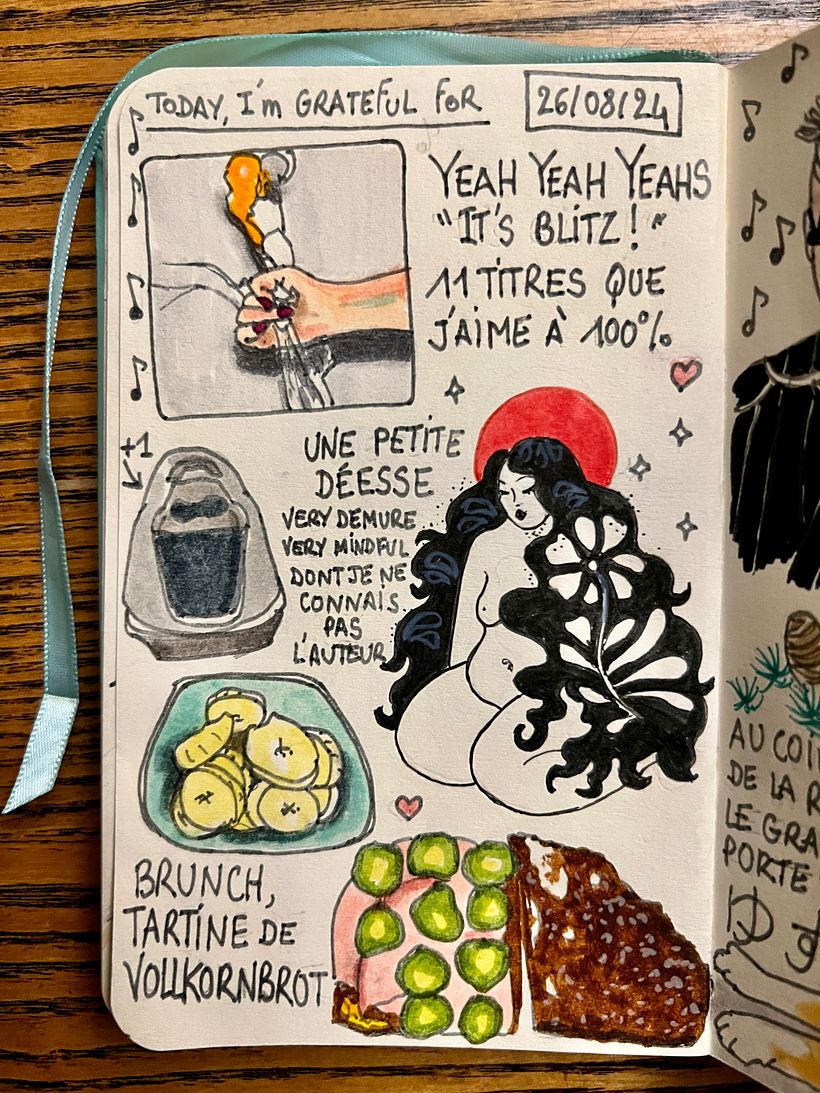 TODAY, I'm GRATEFUL FOR
26/08/24
YEAH YEAH YEAHS
"IT'S BLITZ!"
11 TITRES QUE
J'AIME À 100%
+1
UNE PETITE
DÉESSE
VERY DEMURE
VERY MINDFUL
DONT JE NE
CONNAIS
PAS
L'AUTEUR
BRUNCH,
TARTINE DE
VOLLKORNBROT
AU
DE LA
LE
PORTE